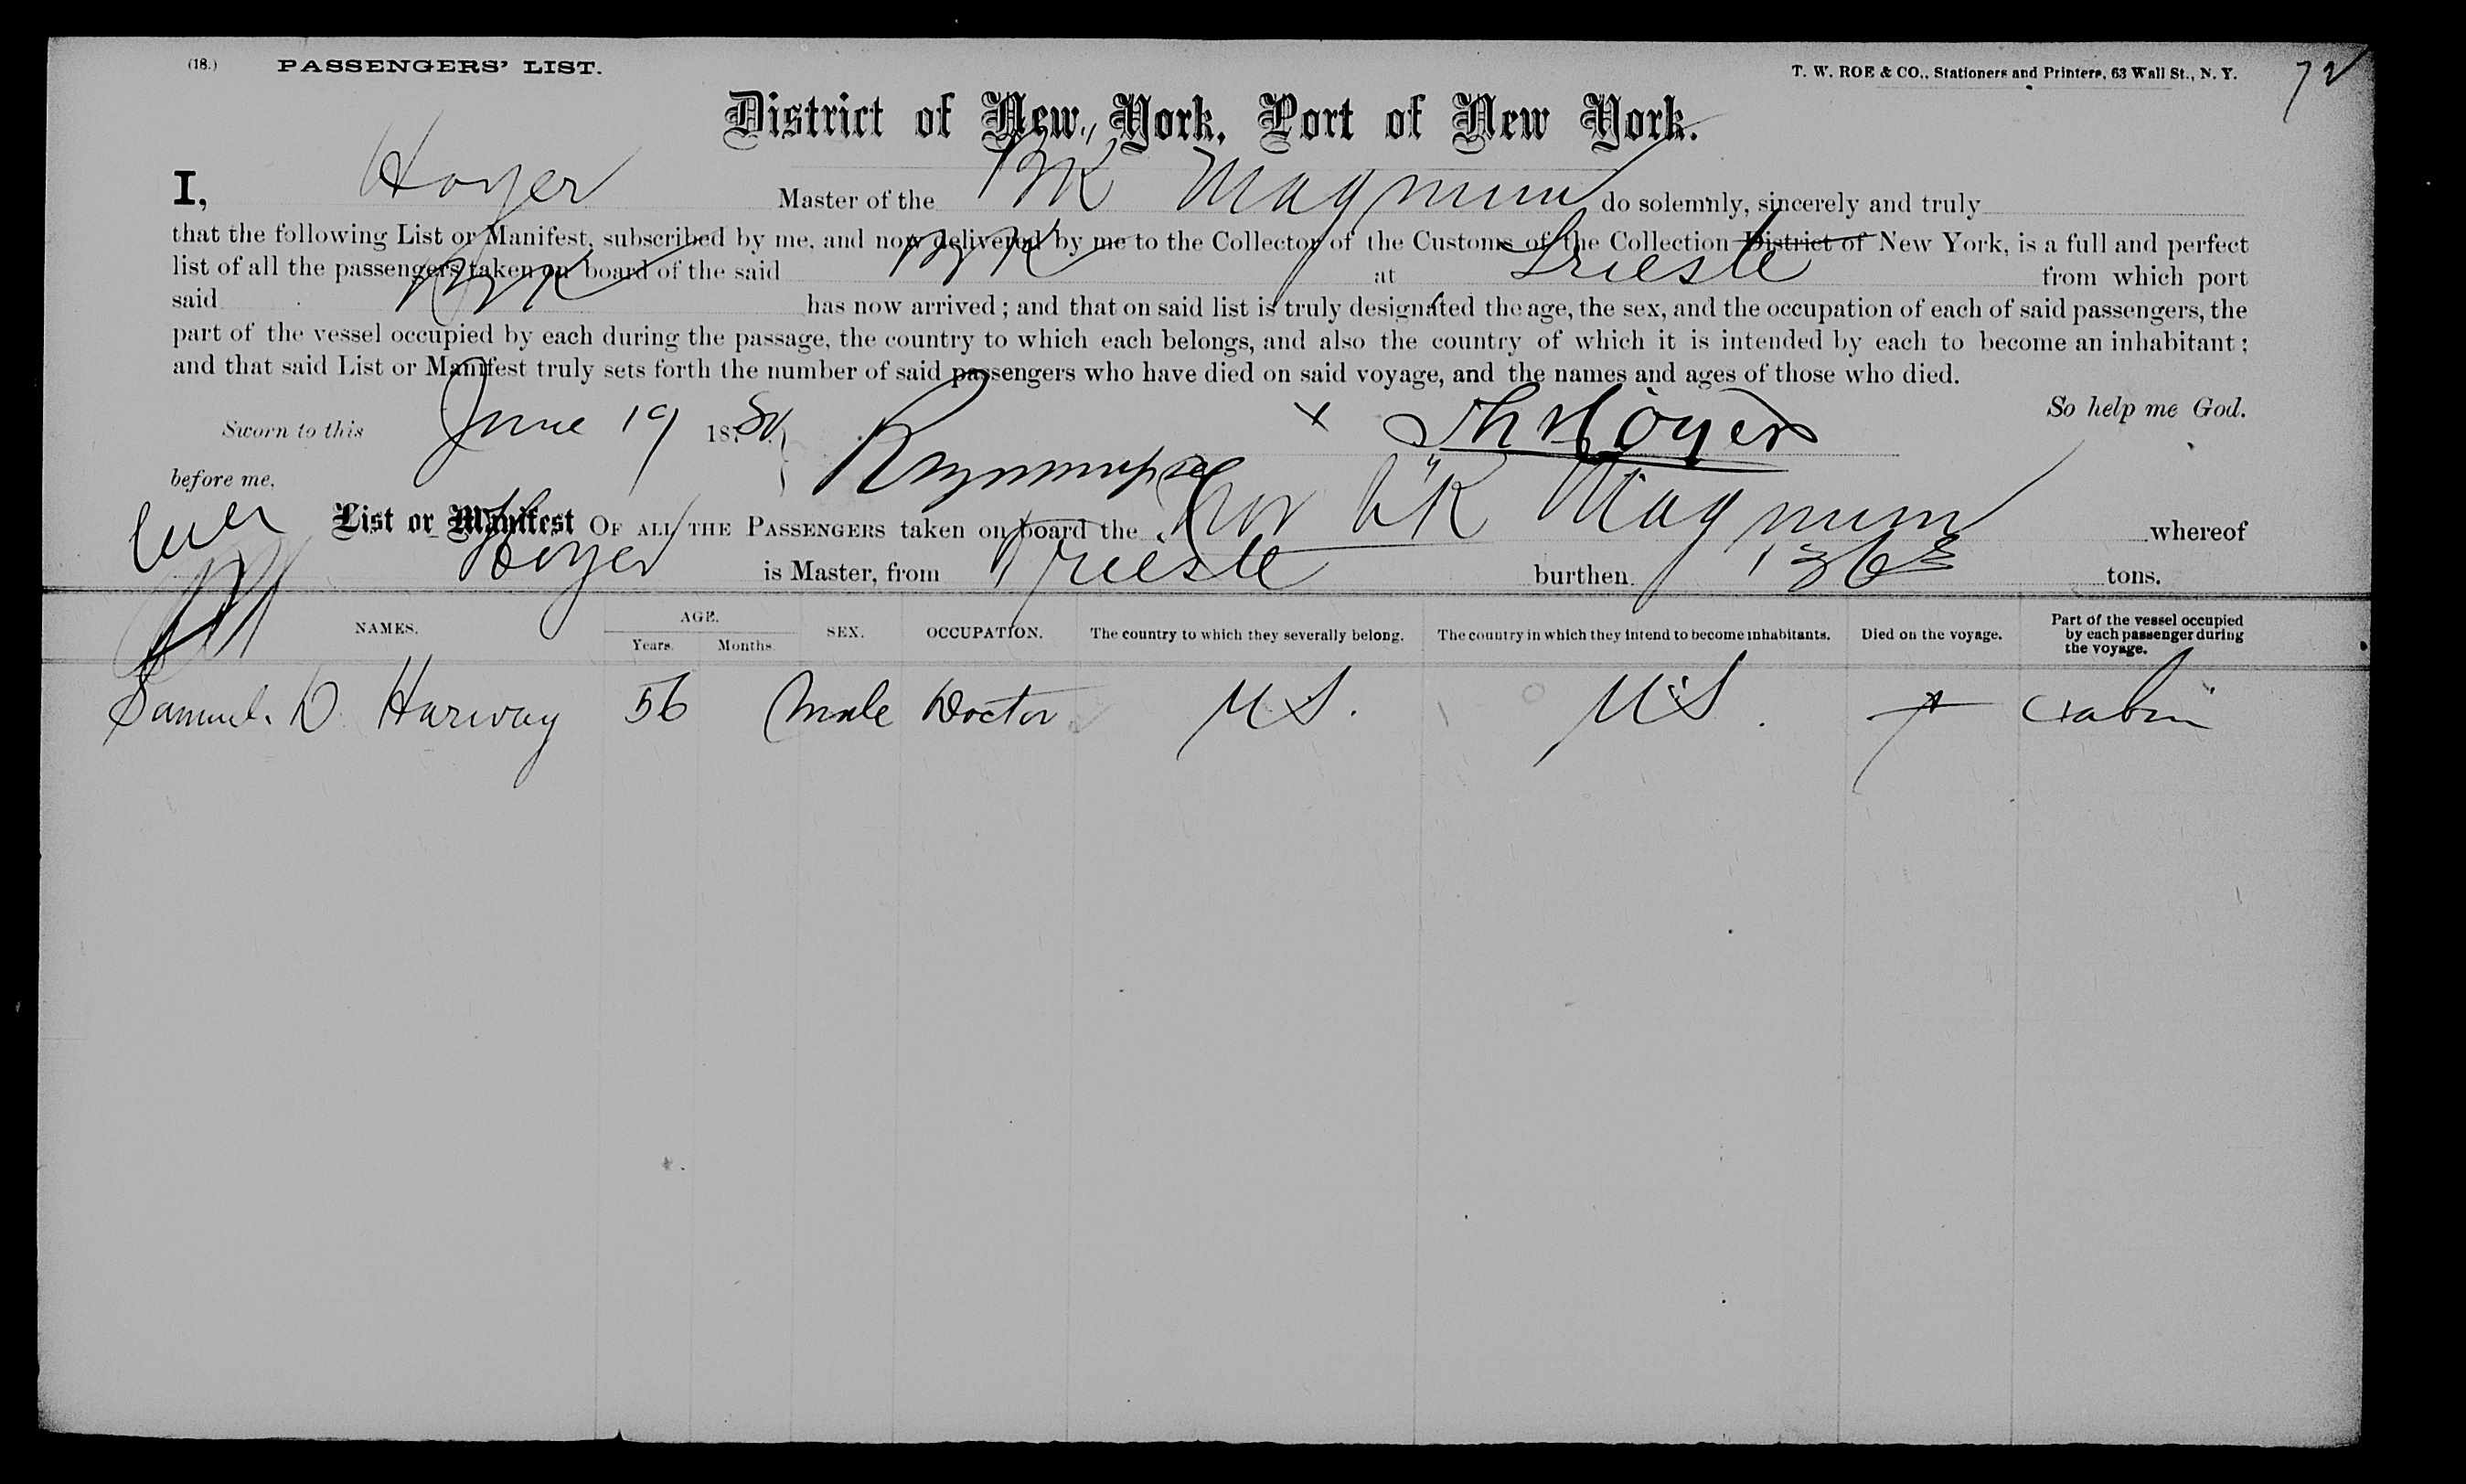 (18.) PASSENGERS' LIST. T. W. ROE & CO., Stationers and Printers, 63 Wall St., N. Y. 72
District of New York, Port of New York.
I, Hoyer Master of the BK Magnum do solemnly, sincerely and truly
that the following List or Manifest, subscribed by me, and now delivered by me to the Collector of the Customs of the Collection District of New York, is a full and perfect
list of all the passengers taken on board of the said BK at Trieste from which port
said BK has now arrived; and that on said list is truly designated the age, the sex, and the occupation of each of said passengers, the
part of the vessel occupied by each during the passage, the country to which each belongs, and also the country of which it is intended by each to become an inhabitant;
and that said List or Manifest truly sets forth the number of said passengers who have died on said voyage, and the names and ages of those who died.
So help me God.
Sworn to this June 19 18 Hoyer
before me,
List or Manifest OF ALL THE PASSENGERS taken on board the Nor BK Magnum whereof
Hoyer is Master, from Trieste burthen 1363 tons.
NAMES. AGE. Years. Months. SEX. OCCUPATION. The country to which they severally belong. The country in which they intend to become inhabitants. Died on the voyage. Part of the vessel occupied by each passenger during the voyage.
Samuel D Harway 56 Male Doctor U S. U S. Cabin